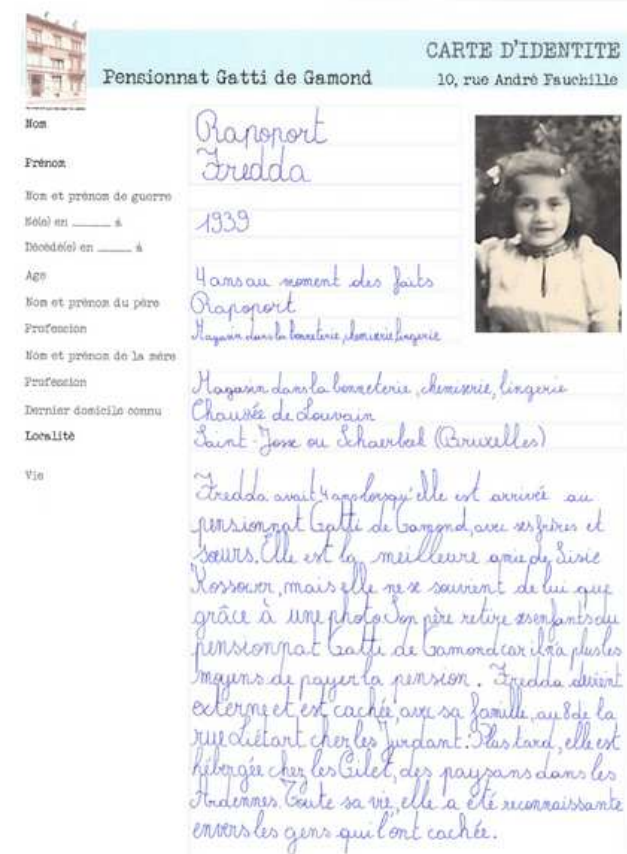 CARTE D'IDENTITE
Pensionnat Gatti de Gamond
10, rue André Fauchille
Nom
Rapoport
Prénom
Fredda
Nom et prénom de guerre
Né(e) en ______ à
1939
Décédé(e) en ______ à
Age
4 ans au moment des faits
Nom et prénom du père
Rapoport
Profession
Magasin dans la bonneterie, chemiserie lingerie
Nom et prénom de la mère
Profession
Magasin dans la bonneterie, chemiserie, lingerie
Dernier domicile connu
Chaussée de Louvain
Localité
Saint-Josse ou Schaerbeek (Bruxelles)
Vie
Fredda avait 4 ans lorsqu'elle est arrivée au
pensionnat Gatti de Gamond, avec ses frères et
sœurs. Elle est la meilleure amie de Sisie
Kossower, mais elle ne se souvient de lui que
grâce à une photo. Son père retire ses enfants du
pensionnat Gatti de Gamond car il n'a plus les
moyens de payer la pension. Fredda devient
externe et est cachée, avec sa famille, au 8 de la
rue Liétart chez les Jurdant. Plus tard, elle est
hébergée chez les Gilet, des paysans dans les
Ardennes. Toute sa vie, elle a été reconnaissante
envers les gens qui l'ont cachée.